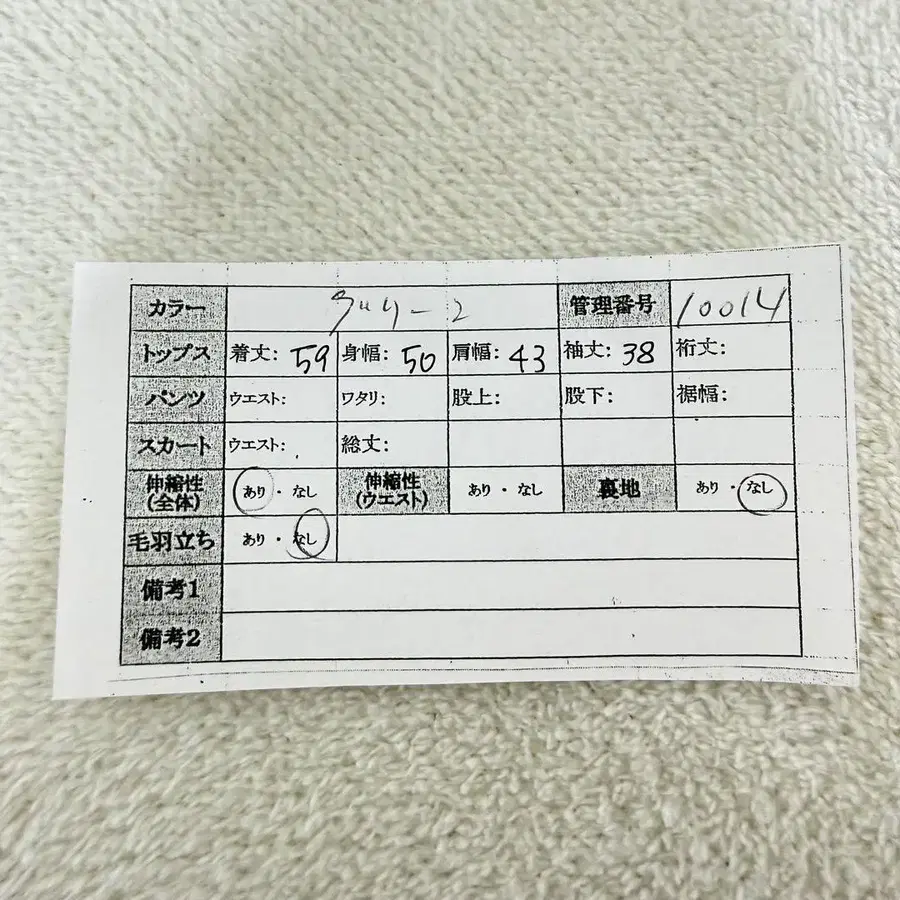 カラー グリーン 管理番号 10014
トップス 着丈: 59 身幅: 50 肩幅: 43 袖丈: 38 裄丈:
パンツ ウエスト: ワタリ: 股上: 股下: 裾幅:
スカート ウエスト: 総丈:
伸縮性 (全体) あり・なし 伸縮性 (ウエスト) あり・なし 裏地 あり・なし
毛羽立ち あり・なし
備考1
備考2